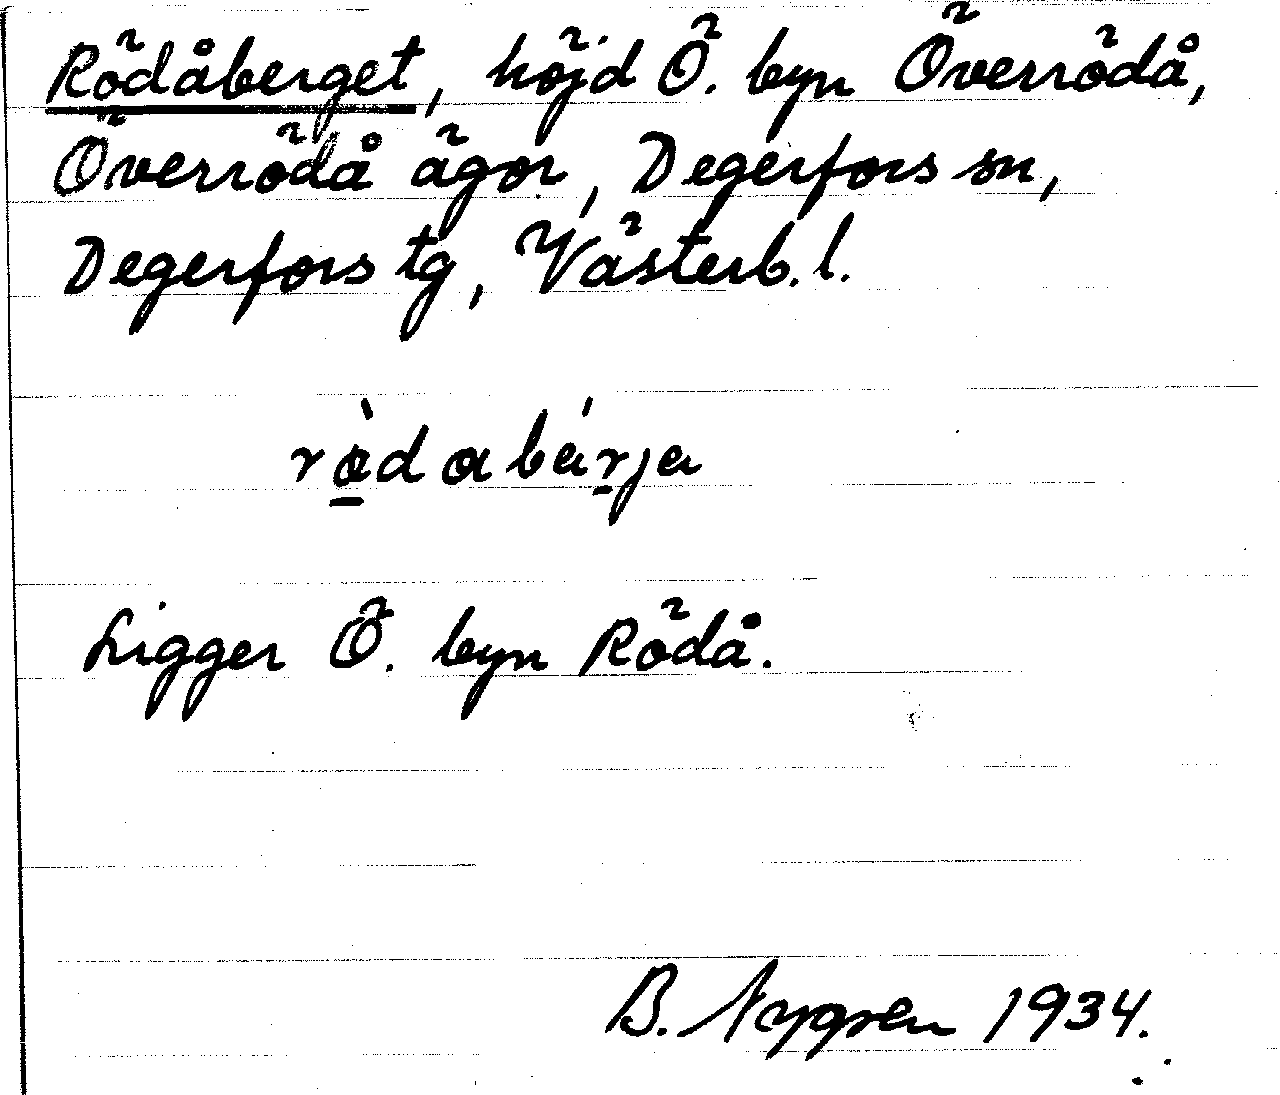 Rödåberget, höjd Ö. byn Överrödå,
Överrödå ägor, Degerfors sn,
Degerfors tg, Västerb. l.
rò̱dabár̠ja
Ligger Ö. byn Rödå.
B. Nygren 1934.